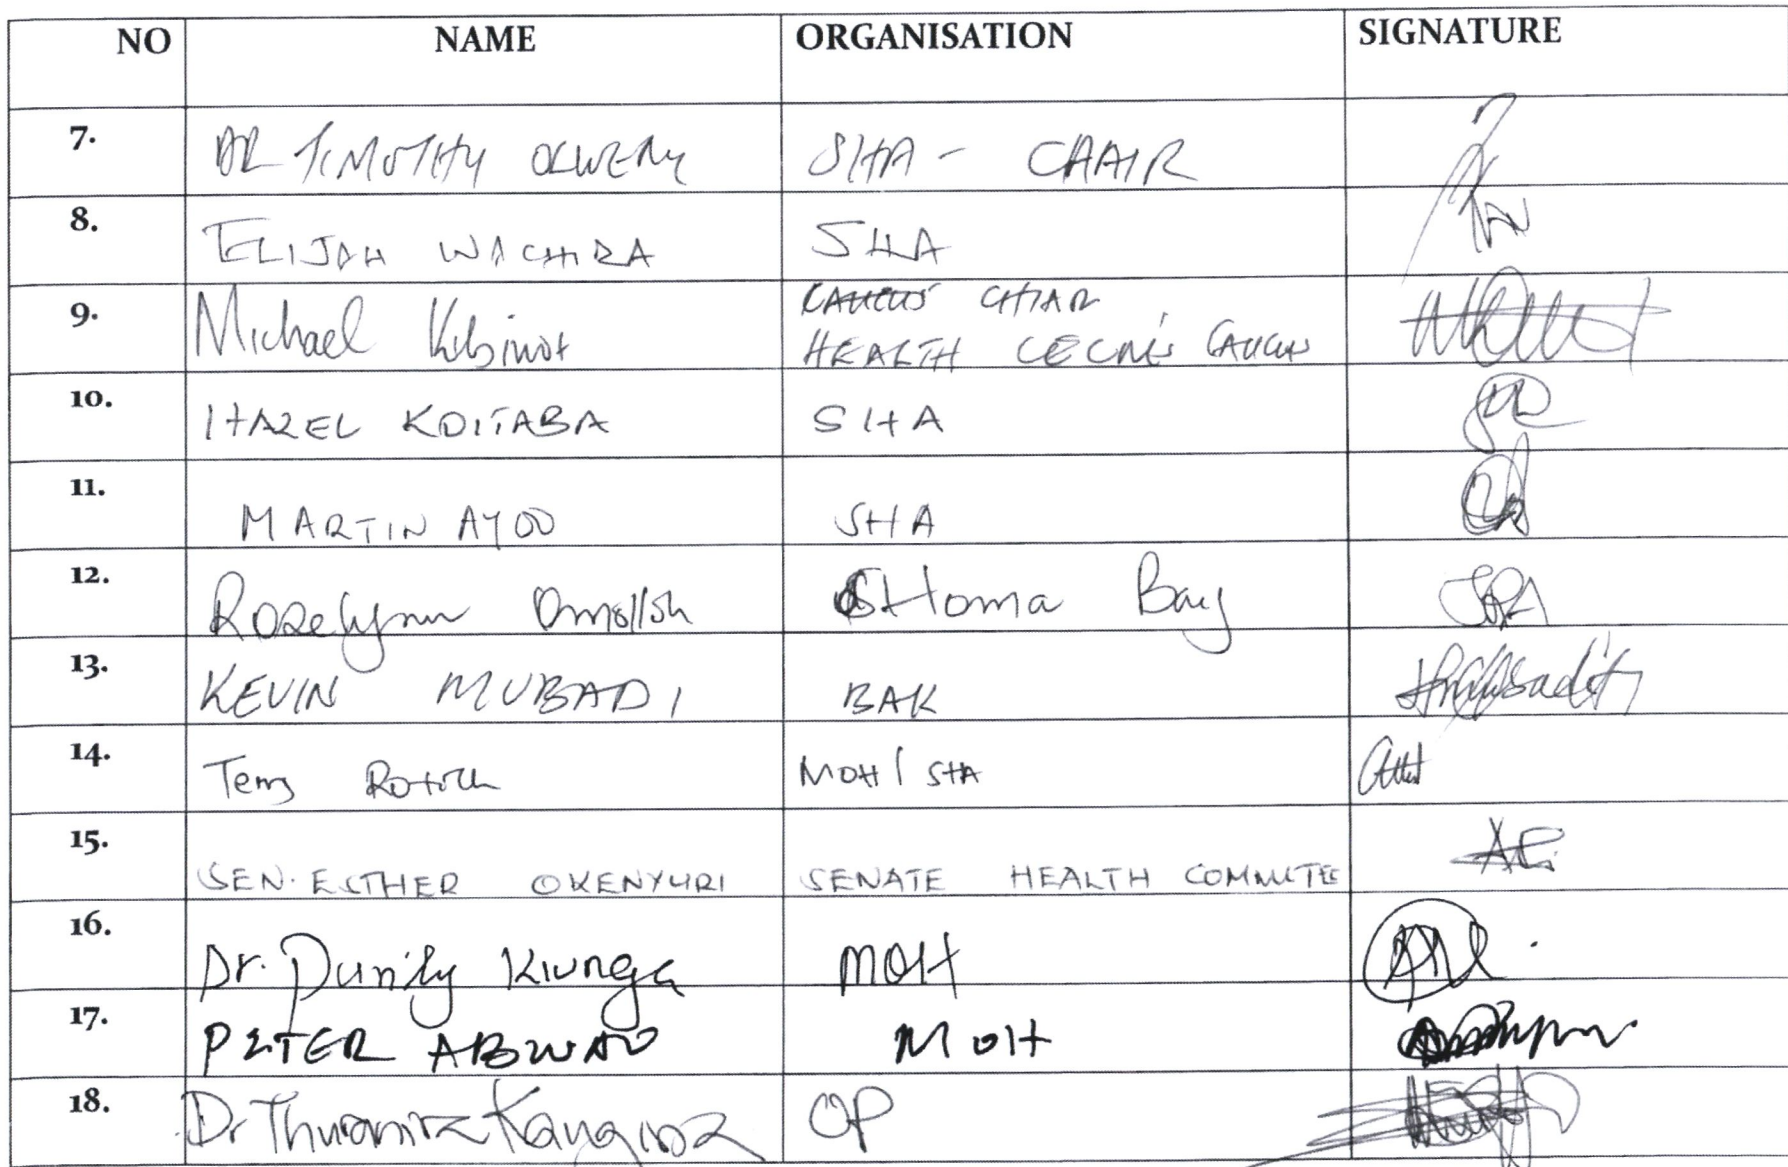 NO NAME ORGANISATION SIGNATURE
7. DR TIMOTHY OLWENY SHA - CHAIR
8. ELIJAH WACHIRA SHA
9. Michael Kibiwot CAUCUS CHIAR
HEALTH CECM'S CAUCUS
10. HAZEL KOITABA SHA
11. MARTIN AYOO SHA
12. Rozelynn Omolloh Homa Bay
13. KEVIN MUBADI BAK
14. Terry Rotich MOH/SHA
15. SEN. ESTHER OKENYURI SENATE HEALTH COMMITEE
16. Dr. Purity Kiunga MOH
17. PETER ABWAO MOH
18. Dr Thuranira Kaugiria OP